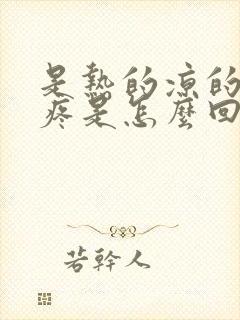 是熱的凉的
疼是怎麼回
若幹人